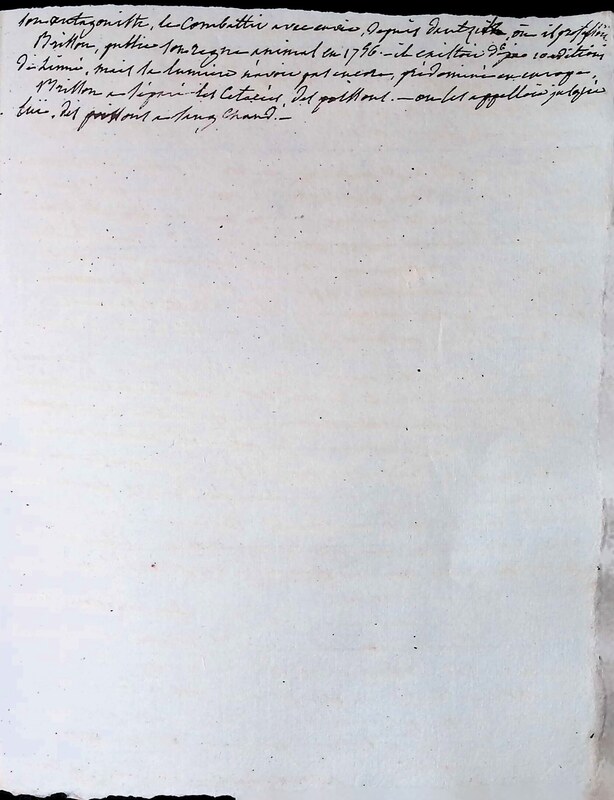 son antagoniste, le combattit avec envie, depuis dantzick, où il professoit
Brisson, publie son regne animal en 1756 - il existoit dejà conditions
de Linné, mais la lumiere n'avoit pas encore, prédominé en europe -
Brisson a séparé les Cetacées, des poissons. - on les appelloit jusqu'à
lui, des poissons a sang chaud. -